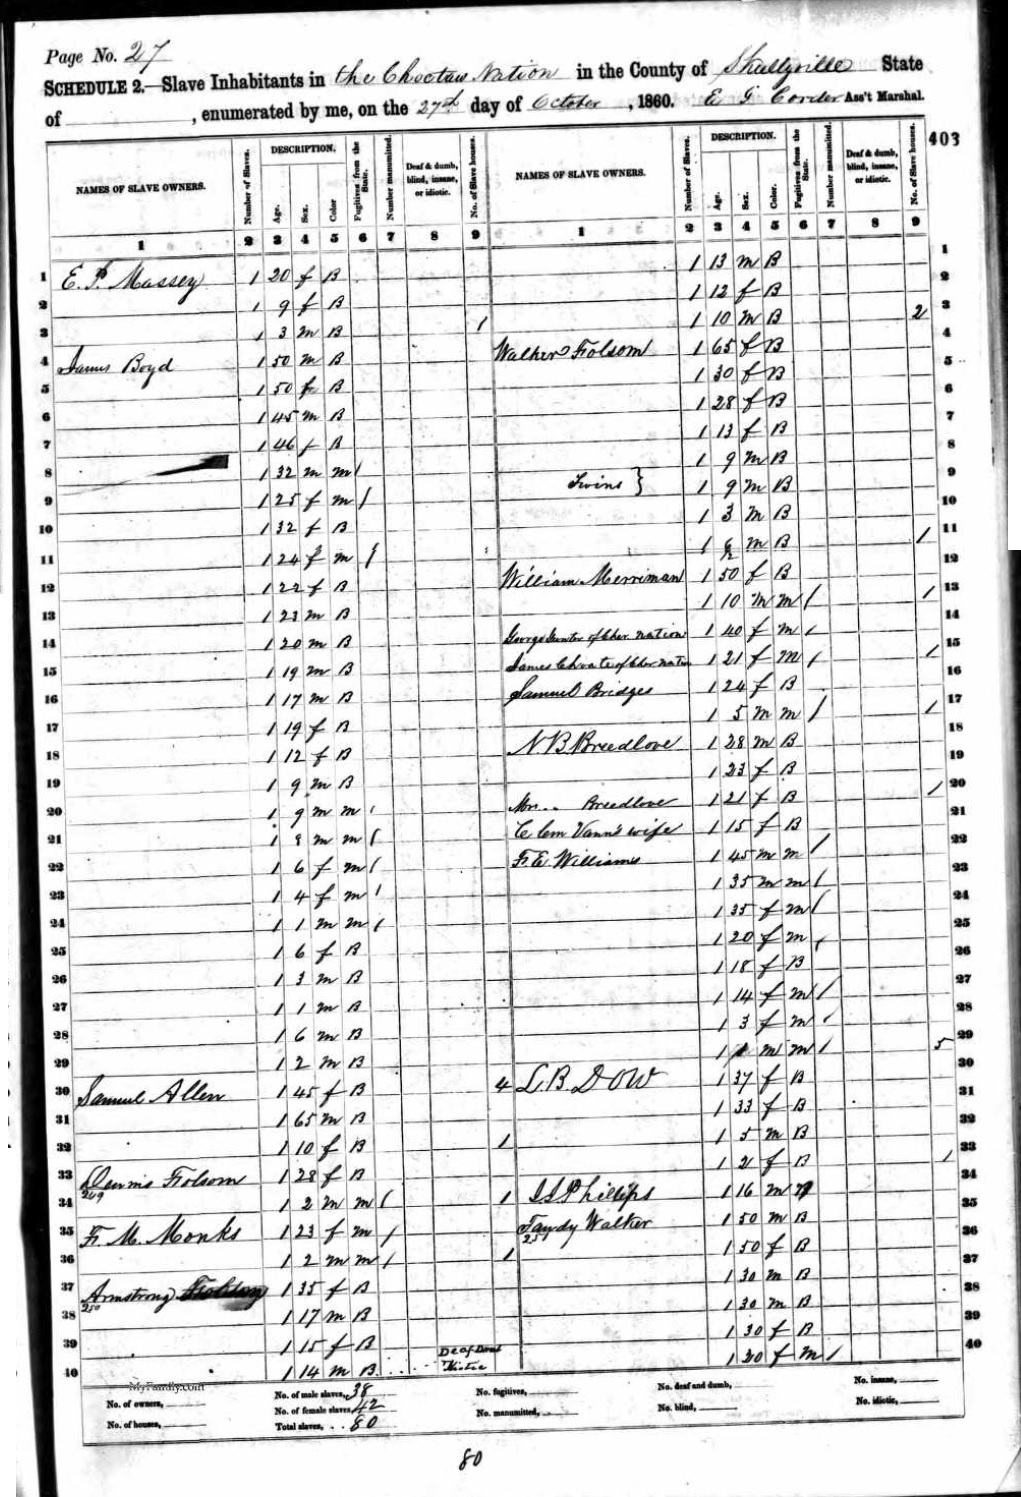 Page No. 27
SCHEDULE 2.—Slave Inhabitants in the Choctaw Nation in the County of Skullyville State
of , enumerated by me, on the 27th day of October, 1860. E G Corder Ass't Marshal.
403
NAMES OF SLAVE OWNERS. Number of Slaves. DESCRIPTION. Age. Sex. Color Fugitives from the State. Number manumitted. Deaf & dumb, blind, insane, or idiotic. No. of Slave houses. NAMES OF SLAVE OWNERS. Number of Slaves. DESCRIPTION. Age. Sex. Color. Fugitives from the State. Number manumitted. Deaf & dumb, blind, insane, or idiotic. No. of Slave houses.
1 2 3 4 5 6 7 8 9 1 2 3 4 5 6 7 8 9
1 E. P. Massey 1 20 f B 1 13 m B 1
2 1 9 f B 1 12 f B 2
3 1 3 m B 1 1 10 m B 2 3
4 James Boyd 1 50 m B Walker Folsom 1 65 f B 4
5 1 50 f B 1 30 f B 5
6 1 45 m B 1 28 f B 6
7 1 46 f B 1 13 f B 7
8 1 32 m m 1 1 9 m B 8
9 1 25 f m 1 Twins } 1 9 m B 9
10 1 32 f B 1 3 m B 10
11 1 24 f m 1 1 m B 1 11
12 1 22 f B William Merriman 1 50 f B 12
13 1 23 m B 1 10 m m 1 1 13
14 1 20 m B George of Cher. Nation 1 40 f m 1 14
15 1 19 m B James Choate of Cher Nation 1 21 f m 1 1 15
16 1 17 m B Samuel Bridges 1 24 f B 16
17 1 19 f B 1 5 m m 1 1 17
18 1 12 f B N B Breedlove 1 28 m B 18
19 1 9 m B 1 23 f B 19
20 1 9 m m 1 Mrs.. Breedlove 1 21 f B 1 20
21 1 8 m m 1 Clem Vann's wife 1 15 f B 21
22 1 6 f m 1 F. E. Williams 1 45 m m 1 22
23 1 4 f m 1 1 35 m m 1 23
24 1 1 m m 1 1 35 f m 1 24
25 1 6 f B 1 20 f m 1 25
26 1 3 m B 1 18 f B 26
27 1 1 m B 1 14 f m 1 27
28 1 6 m B 1 3 f m 1 28
29 1 2 m B 1 1 m m 1 5 29
30 Samuel Allen 1 45 f B 4 L. B. DOW 1 37 f B 30
31 1 65 m B 1 33 f B 31
32 1 10 f B 1 1 5 m B 32
33 Dennis Folsom 1 28 f B 1 2 f B 1 33
249
34 1 2 m m 1 1 J S Phillips 1 16 m 34
35 F. M. Monks 1 23 f m 1 Tandy Walker 1 50 m B 35
251
36 1 2 m m 1 1 1 50 f B 36
37 Armstrong 1 35 f B 1 30 m B 37
250
38 1 17 m B 1 30 m B 38
39 1 15 f B 1 30 f B 39
40 1 14 m B Deaf 1 20 f m 1 40
MyFamily.com
No. of owners, No. of male slaves, 38 No. fugitives, No. deaf and dumb, No. insane,
No. of female slaves, 42
No. of houses, Total slaves, 80 No. manumitted, No. blind, No. idiotic,
80